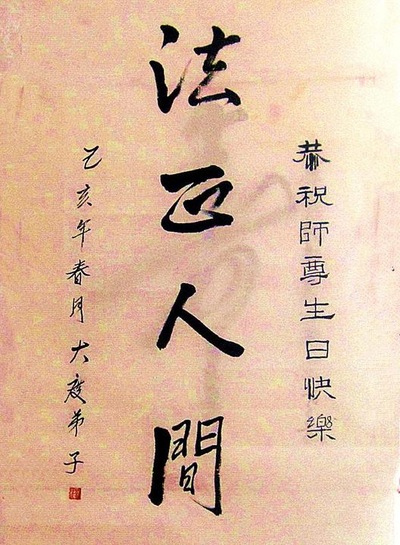 恭祝師尊生日快樂
法正人間
乙亥年春月大度弟子